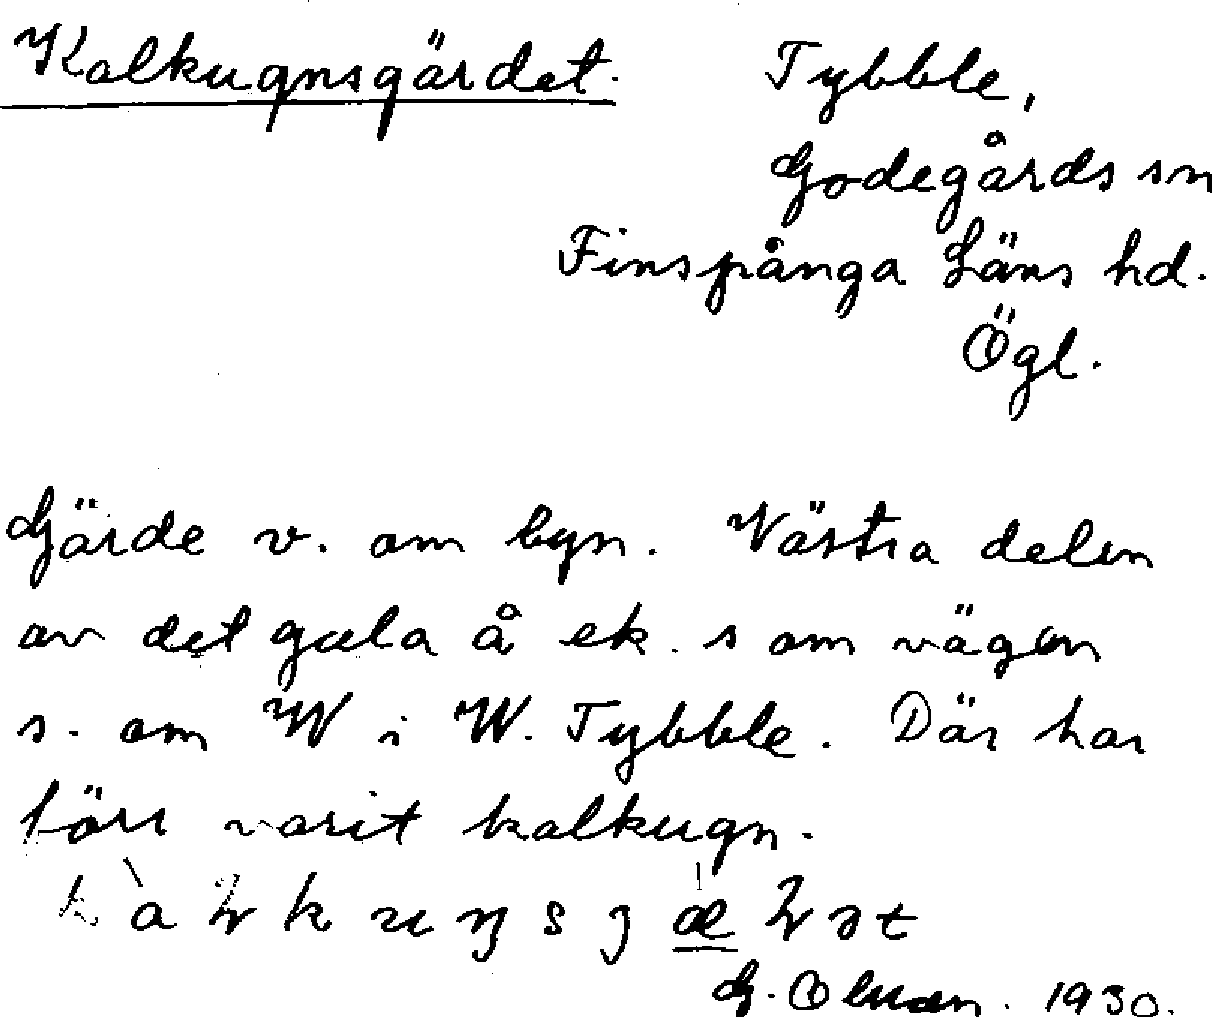 Kalkugnsgärdet. Tybble,
Godegårds sn
Finspånga Läns hd.
Ögl.
Gärde v. om byn. Västra delen
av det gula å ek. s om vägen
s. om W i W. Tybble. Där har
förr varit kalkugn.
1930.